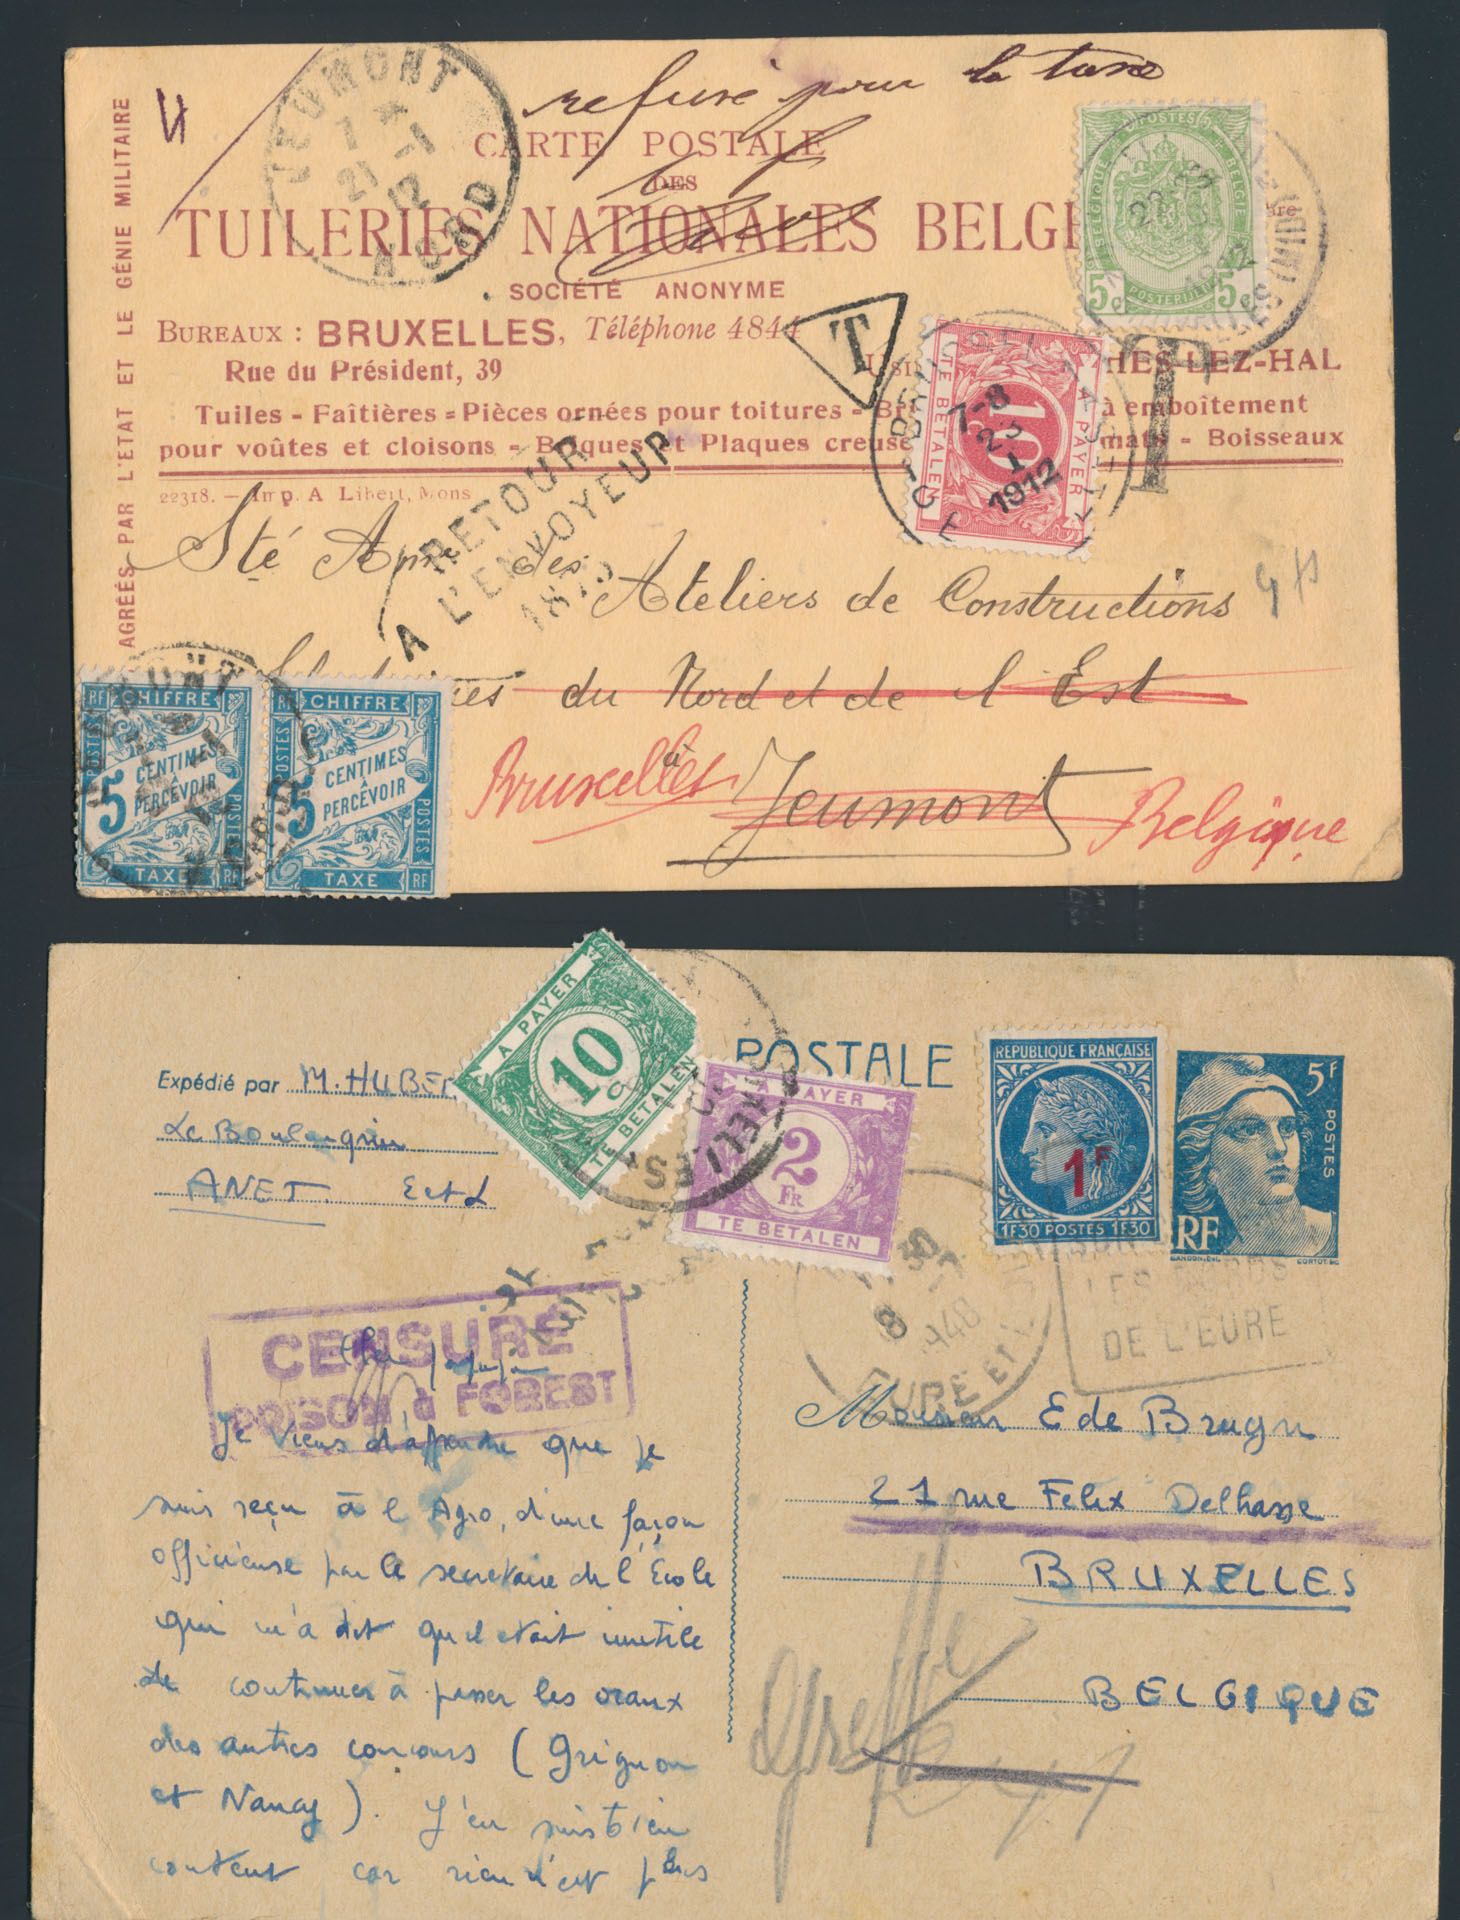 refusé pour la taxe
CARTE POSTALE
DES
TUILERIES NATIONALES BELG
SOCIÉTÉ ANONYME
BUREAUX : BRUXELLES, Téléphone 4844
Rue du Président, 39
HES-LEZ-HAL
Tuiles - Faîtières = Pièces ornées pour toitures - Br à emboîtement
pour voûtes et cloisons - Briques et Plaques creuse - Boisseaux
22318. - Imp. A Libert, Mons
AGRÉÉS PAR L'ETAT ET LE GÉNIE MILITAIRE
JEUMONT
7
21 -1
12
NORD
POSTES
BELGIQUE BELGIE
5c 5c
POSTERIJEN
1912
T
T
A PAYER
10c
TE BETALEN
7-8
23
1
1912
RETOUR
A L'ENVOYEUR
Sté Ame des Ateliers de Constructions
du Nord et de l'Est
à
Jeumont
Bruxelles Belgique
CHIFFRE
5
CENTIMES
À
PERCEVOIR
TAXE
POSTES
RF
CHIFFRE
5
CENTIMES
À
PERCEVOIR
TAXE
POSTES
RF
POSTALE
Expédié par M. HUBE
Le Boulangrin
ANET E et L
A PAYER
10 c
TE BETALEN
A PAYER
2
FR
TE BETALEN
RÉPUBLIQUE FRANÇAISE
1F
1F30 POSTES 1F30
5F
POSTES
RF
8
1948
EURE ET
DE L'EURE
CENSURE
PRISON d FOREST
Je viens d'apprendre que je
suis reçu à l'Agro, d'une façon
officieuse par le secretaire de l'Ecole
qui m'a dit qu'il etait inutile
de continuer à passer les oraux
des autres concours (Grignon
et Nancy). J'en suis bien
content car rien n'est plus
Monsieur E de Bruyn
21 rue Felix Delhasse
BRUXELLES
BELGIQUE